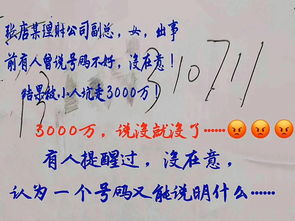 张店某理财公司副总，女，出事
前有人曾说号码不好，没在意！
结果被小人坑走3000万！
310711
3000万，说没就没了……😡😡😡
有人提醒过，没在意，
认为一个号码又能说明什么……